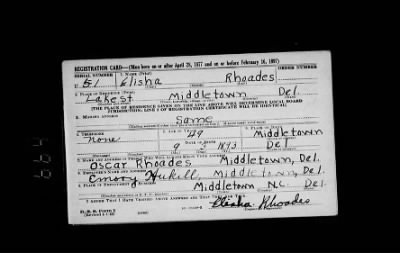 REGISTRATION CARD—(Men born on or after April 28, 1877 and on or before February 16, 1897)
SERIAL NUMBER 1. NAME (Print) ORDER NUMBER
U 51 Elisha Rhoades
2. PLACE OF RESIDENCE (Print)
Lake St Middletown Del.
[THE PLACE OF RESIDENCE GIVEN ON THE LINE ABOVE WILL DETERMINE LOCAL BOARD
JURISDICTION; LINE 2 OF REGISTRATION CERTIFICATE WILL BE IDENTICAL]
3. MAILING ADDRESS
Same
4. TELEPHONE 5. AGE IN YEARS 6. PLACE OF BIRTH
none 49 Middletown
DATE OF BIRTH
9 1893 Del
7. NAME AND ADDRESS OF PERSON WHO WILL ALWAYS KNOW YOUR ADDRESS
Oscar Rhoades Middletown, Del.
8. EMPLOYER'S NAME AND ADDRESS
Emory Hukill, Middletown, Del.
9. PLACE OF EMPLOYMENT OR BUSINESS
Middletown N.C. Del.
I AFFIRM THAT I HAVE VERIFIED ABOVE ANSWERS AND THAT THEY ARE TRUE.
D. S. S. Form 1
Elisha Rhoades